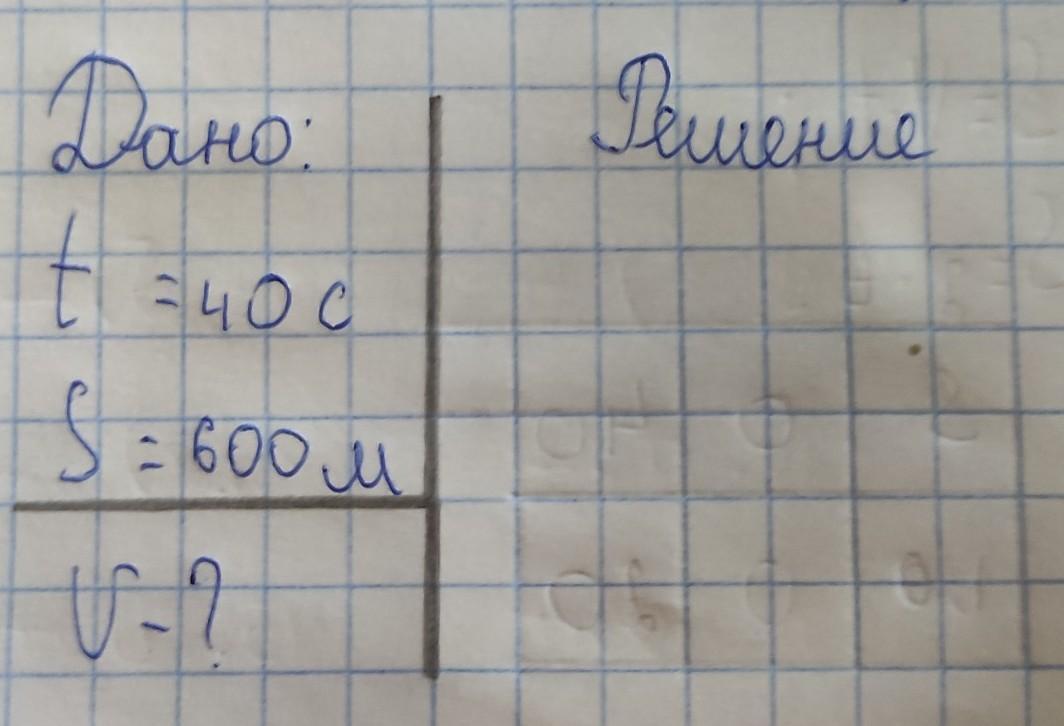 Дано:
t = 40 с
S = 600 м
V - ?
Решение